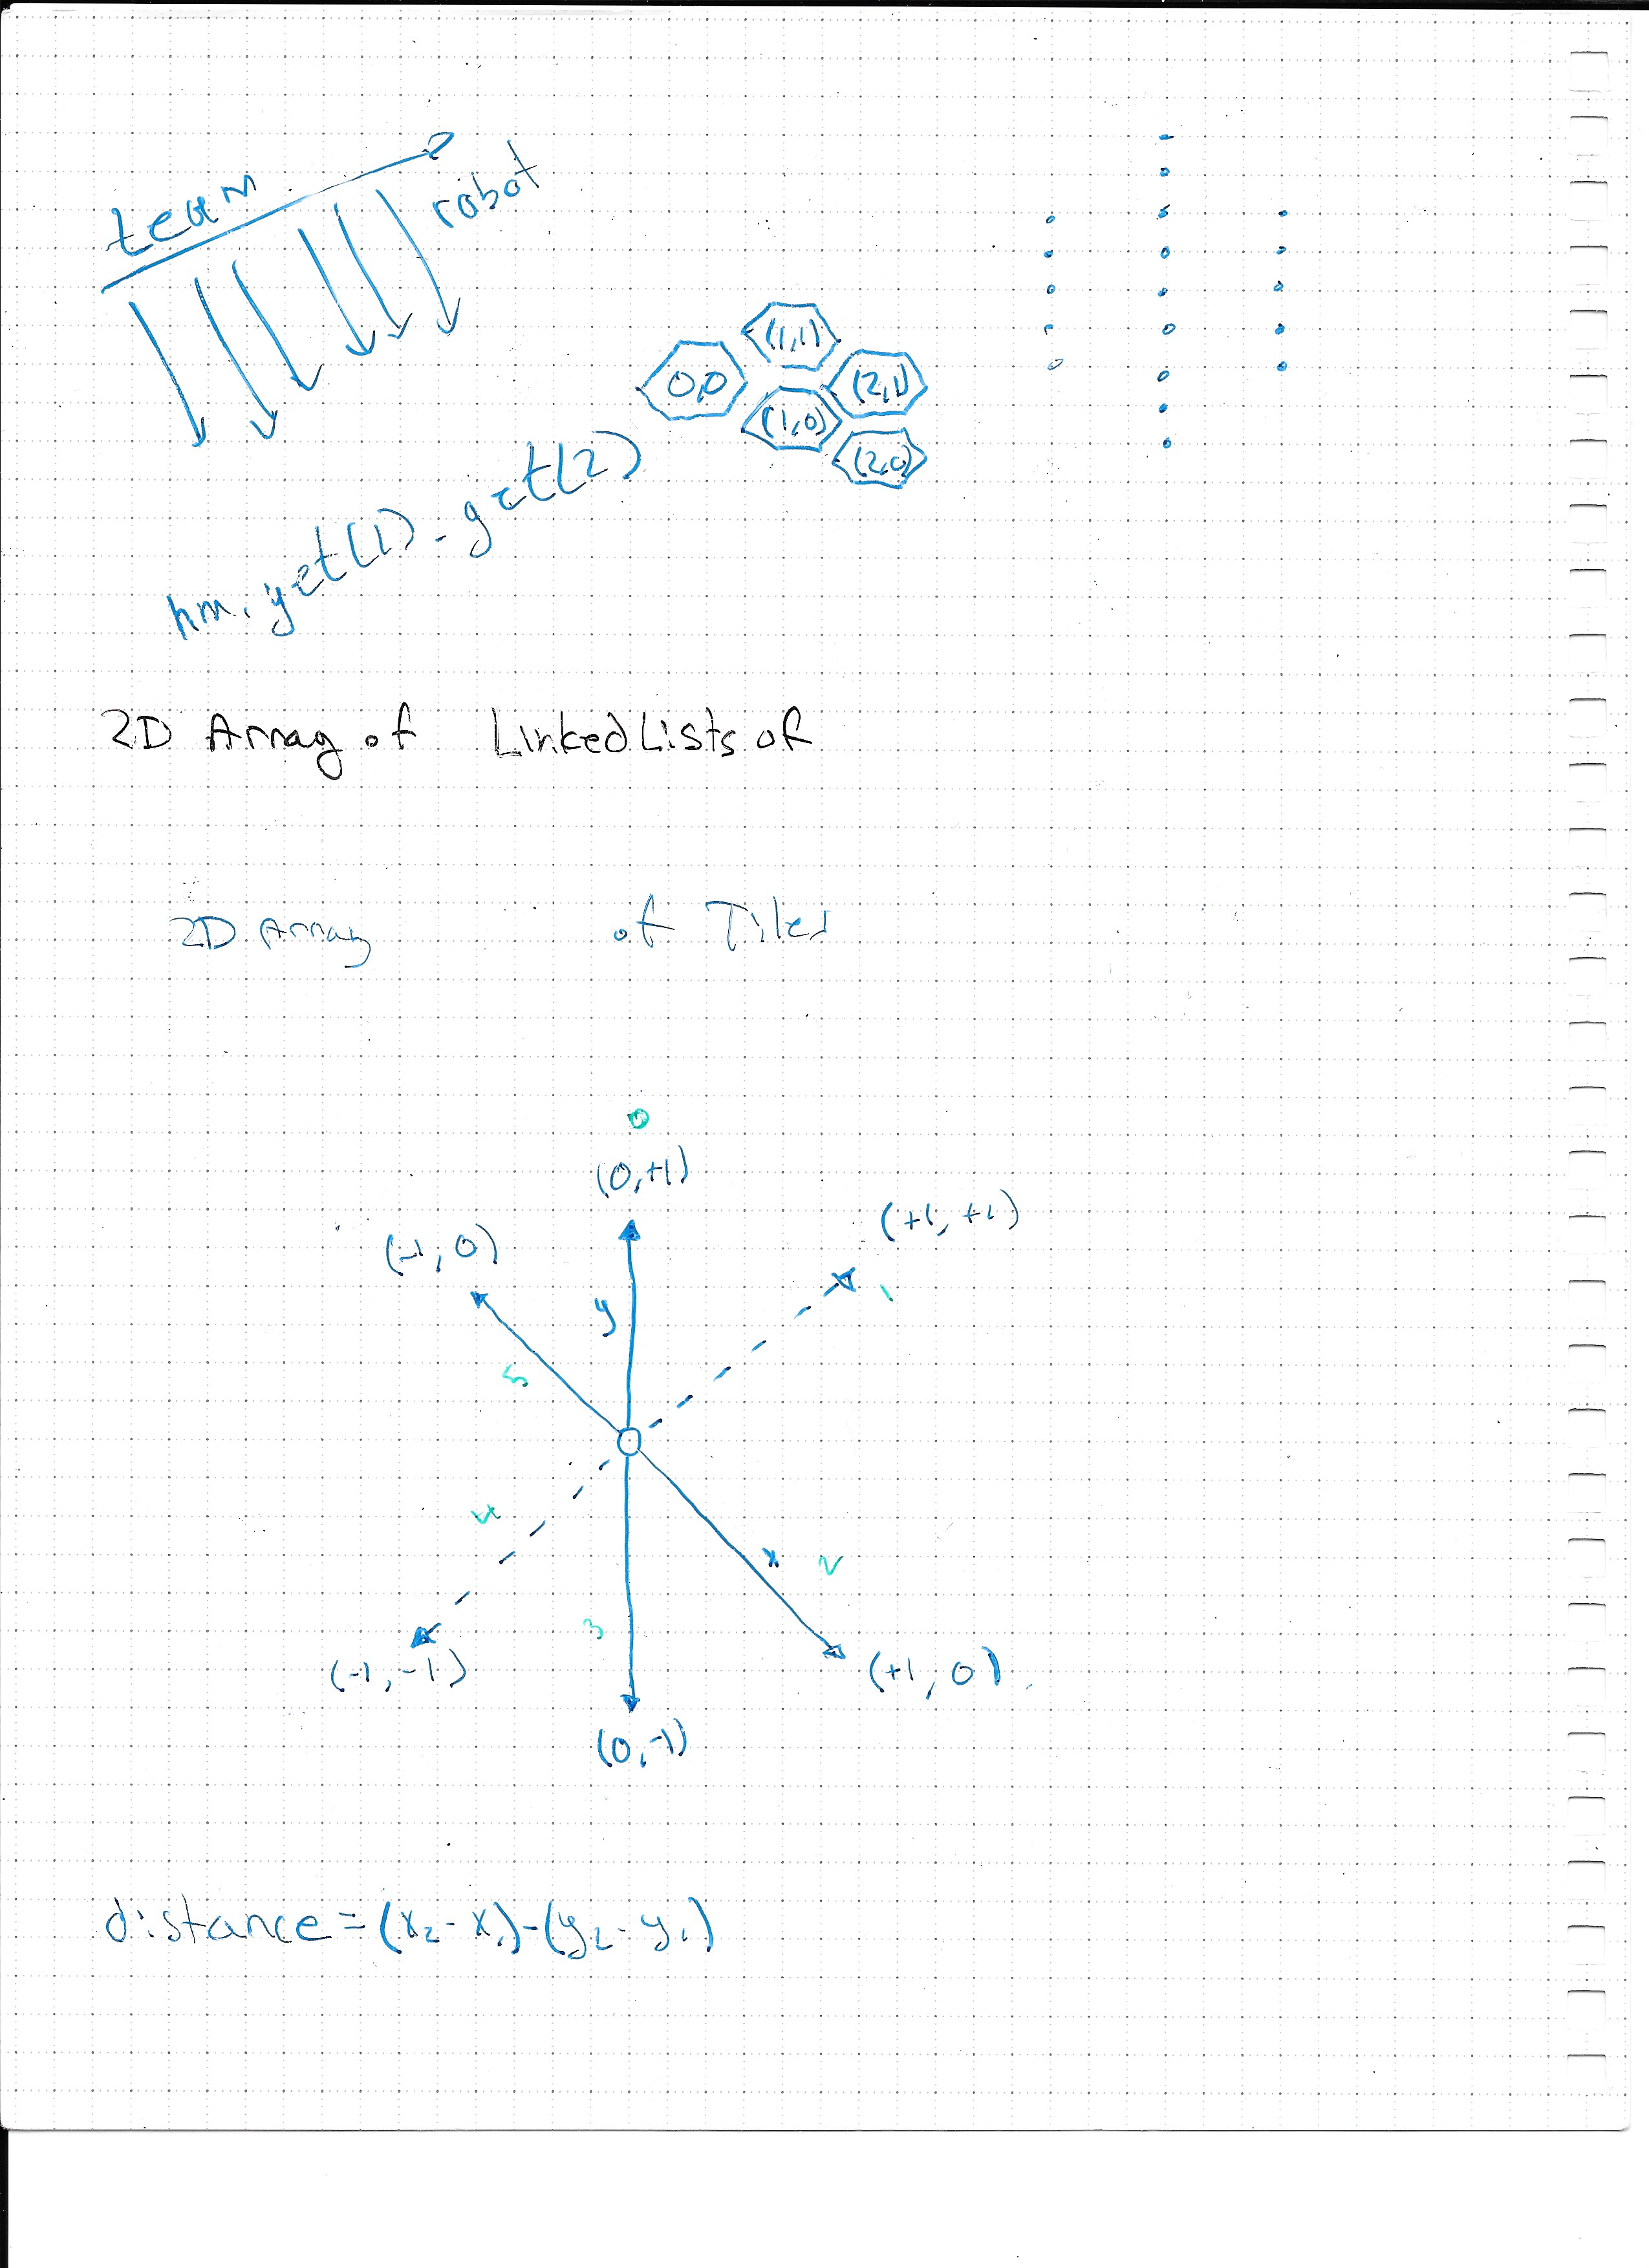 team
robot
(1,1)
0,0
(2,1)
(1,0)
(2,0)
hm.get(1).get(2)
2D Array of LinkedLists of
2D Array of Tiles
0
(0,+1)
(+1,+1)
(-1,0)
1
y
5
4
x
2
3
(-1,-1)
(+1,0)
(0,-1)
distance=(x₂-x₁)-(y₂-y₁)